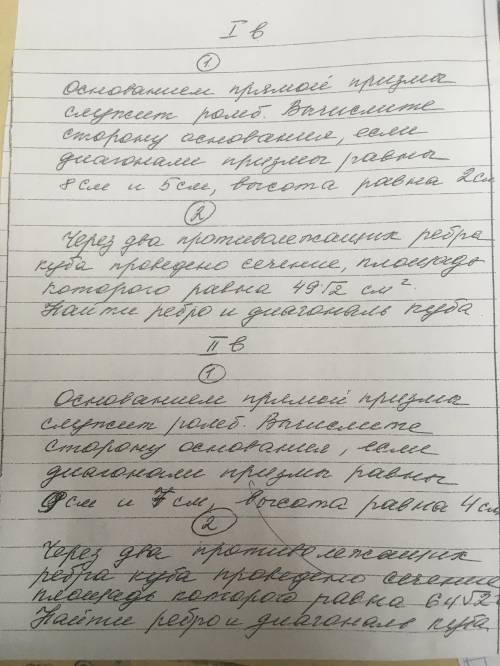 I в
1
Основанием прямой призмы
служит ромб. Вычислите
сторону основания, если
диагонали призмы равны
8 см и 5 см, высота равна 2 см
2
Через два противолежащих ребра
куба проведено сечение, площадь
которого равна 49√2 см².
Найти ребро и диагональ куба
II в
1
Основанием прямой призмы
служит ромб. Вычислите
сторону основания, если
диагонали призмы равны
9 см и 7 см, высота равна 4 см
2
Через два противолежащих
ребра куба проведено сечение
площадь которого равна 64√2
Найти ребро и диагональ куба